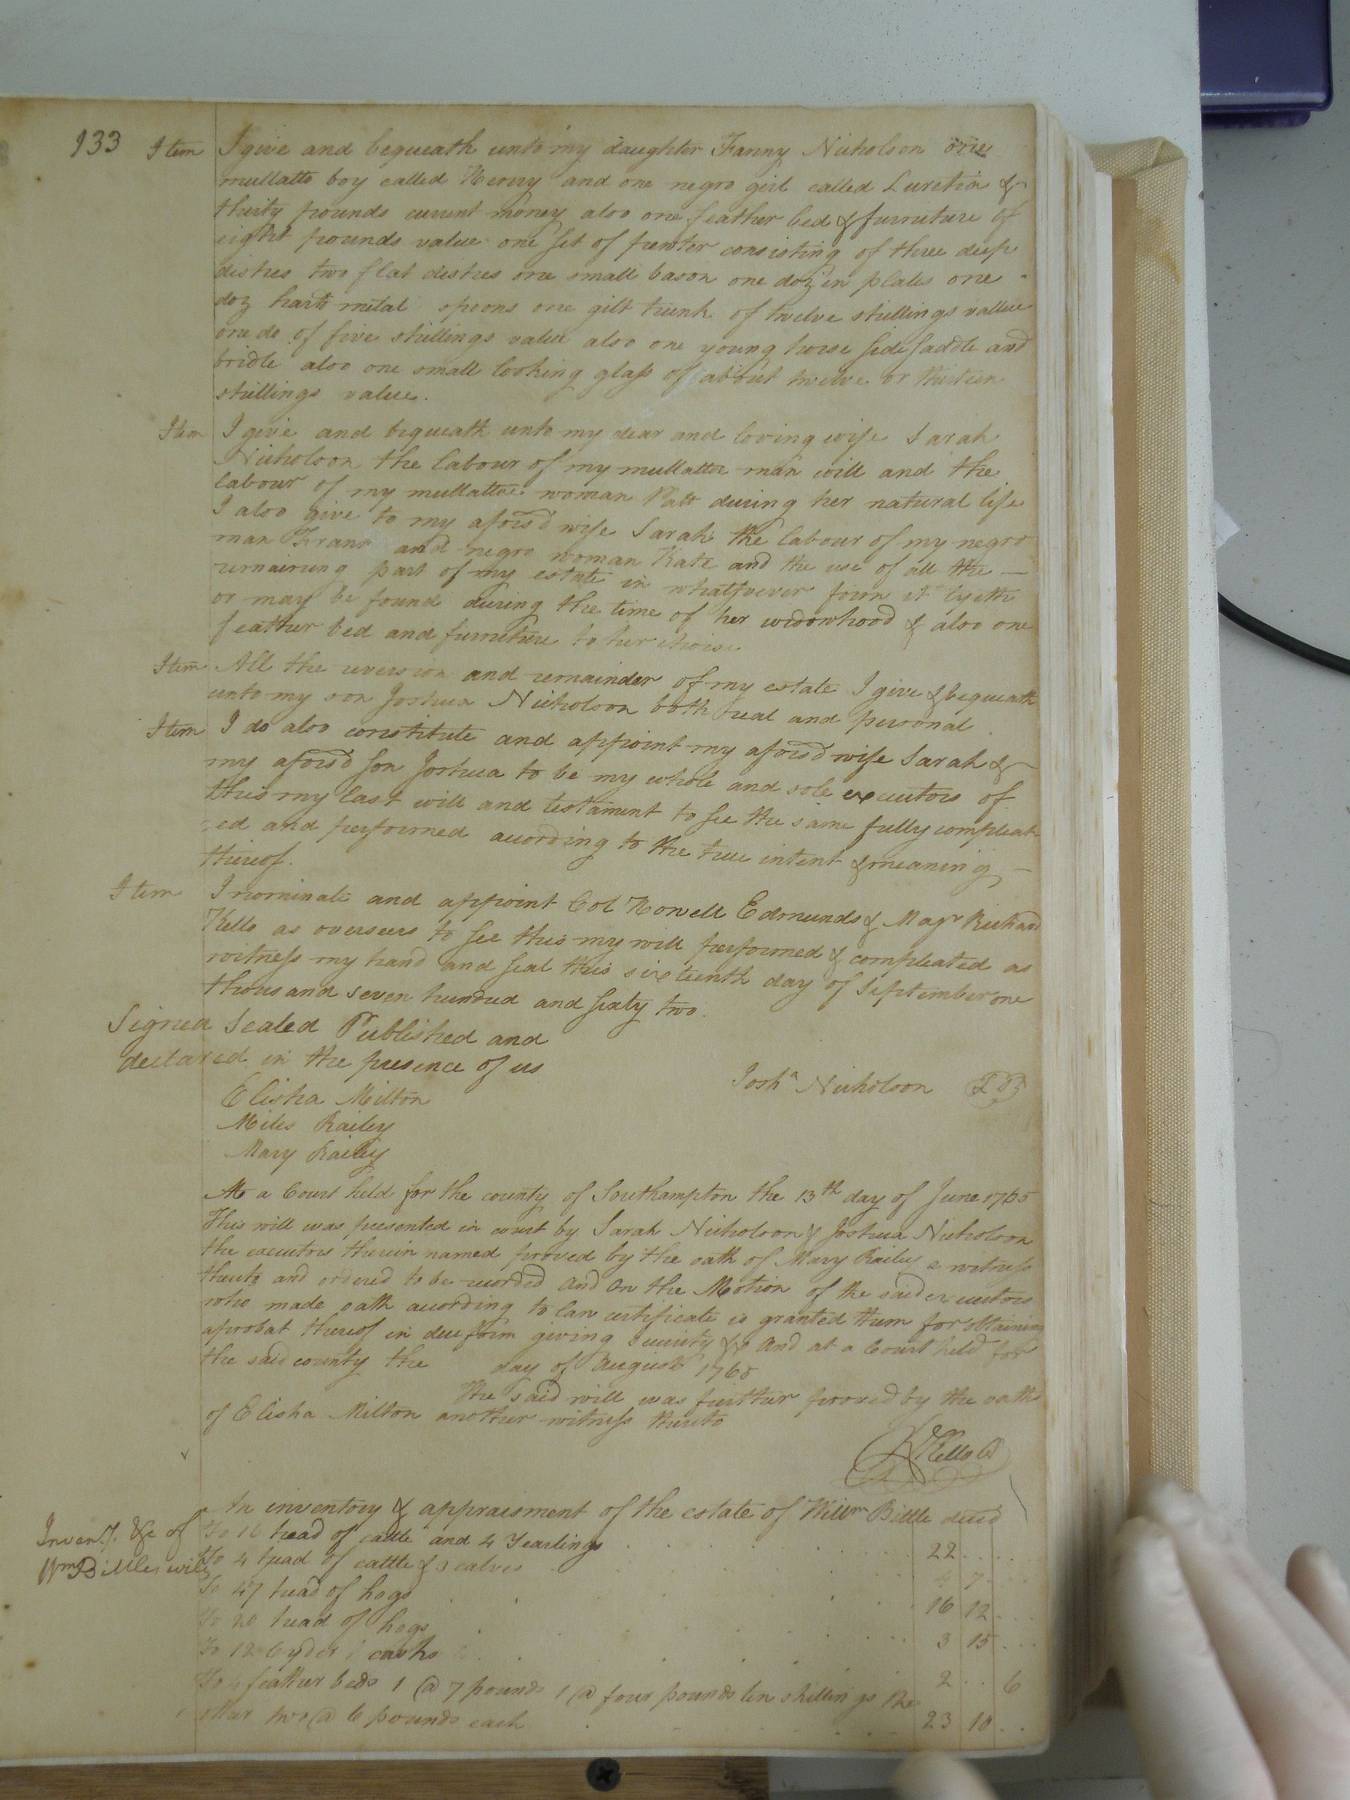 133 Item I give and bequeath unto my daughter Fanny Nicholson one
mullatto boy called Henry and one negro girl called Luretia &
thirty pounds current money also one feather bed & furniture of
eight pounds value one set of pewter consisting of three deep
dishes two flat dishes one small bason one dozen plates one
doz hard metal spoons one gilt trunk of twelve shillings vallue
one do of five shillings value also one young horse side saddle and
bridle also one small looking glass of about twelve or thirteen
shillings value.
Item I give and bequeath unto my dear and loving wife Sarah
Nicholson the labour of my mullatto man will and the
labour of my mullattoe woman Patt during her natural life
I also give to my aforsd wife Sarah the labour of my negro
man Frank and negro woman Kate and the use of all the
remaining part of my estate in whatsoever form it lyeth
or may be found during the time of her widowhood & also one
feather bed and furniture to her choise
Item All the reversion and remainder of my estate I give & bequeath
unto my son Joshua Nicholson both real and personal
Item I do also constitute and appoint my aforsd wife Sarah &
my aforsd son Joshua to be my whole and sole executors of
this my last will and testament to see the same fully compleat
ed and performed according to the true intent & meaning
thereof.
Item I nominate and appoint Col Howell Edmunds & Majr Richard
Kello as overseers to see this my will performed & compleated as
witness my hand and seal this sixteenth day of September one
thousand seven hundred and sixty two.
Signed Sealed Published and
declared in the presence of us
Josha Nicholson
Elisha Milton
Miles Railey
Mary Railey
At a Court held for the county of Southampton the 13th day of June 1765
This will was presented in court by Sarah Nicholson & Joshua Nicholson
the executors therein named proved by the oath of Mary Railey a witness
thereto and ordered to be recorded And On the Motion of the said executors
who made oath according to Law certificate is granted them for obtaining
aprobat thereof in due form giving security &c And at a Court held for
the said county the day of August 1765
The said will was further proved by the oath
of Elisha Milton another witness thereto
R Kello
An inventory & appraisment of the estate of Willm Bittle decd
Inven.y. &c of
Wm Bittles will
To 16 head of cattle and 4 Yearlings 22
To 4 head of cattle & calves 7
To 47 head of hogs 16 12
To 20 head of hogs 3 15
To 12 Cyder casks 2 6
To 4 feather beds 1 @ 7 pounds 1 @ four pounds ten shillings the
other two @ 6 pounds each 23 10